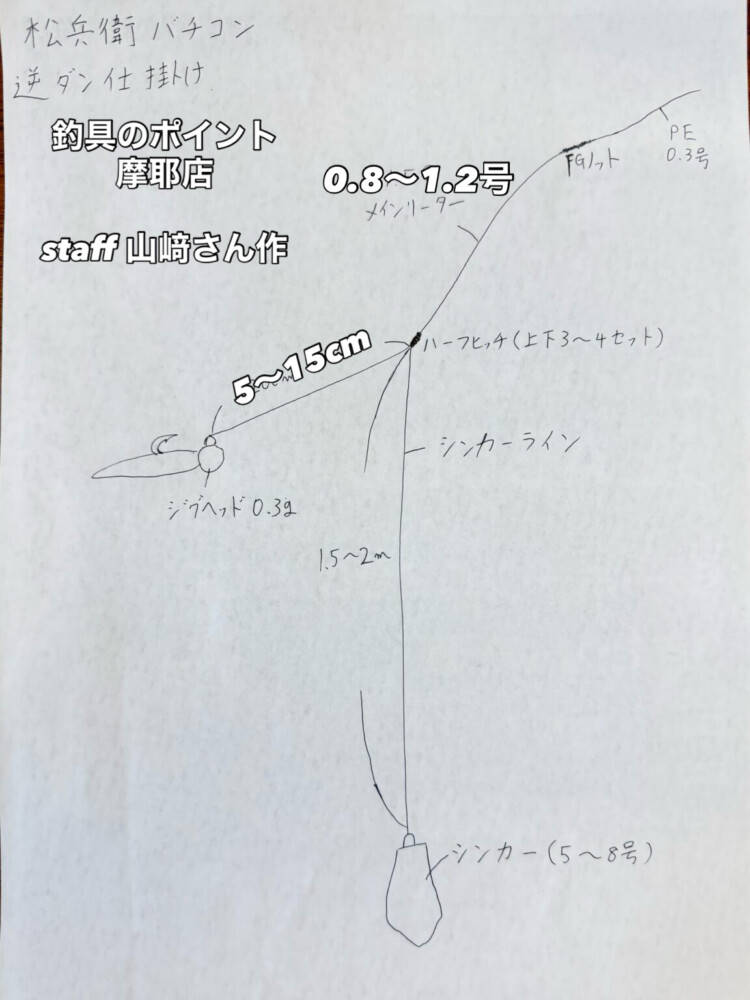 松兵衛 バチコン
逆ダン仕掛け
釣具のポイント
摩耶店
staff 山﨑さん作
PE
0.3号
FGノット
0.8〜1.2号
メインリーダー
ハーフヒッチ(上下3〜4セット)
5〜15cm
シンカーライン
ジグヘッド 0.3g
1.5〜2m
シンカー(5〜8号)